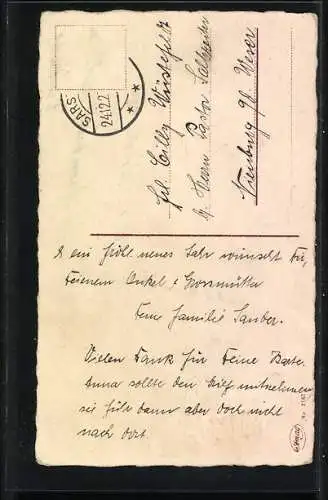 SARS
24.12.2
Frl. Cilly Wüstefeld
b/ Herrn Pastor
Nienburg a/ Weser
& ein fröhl. neues Jahr wünscht Dir,
Deinem Onkel & Grossmutter
Deine Familie Sauber.
Vielen Dank für Deine Karte.
Anna sollte den Brief mitnehmen
sie fuhr dann aber doch nicht
nach dort.